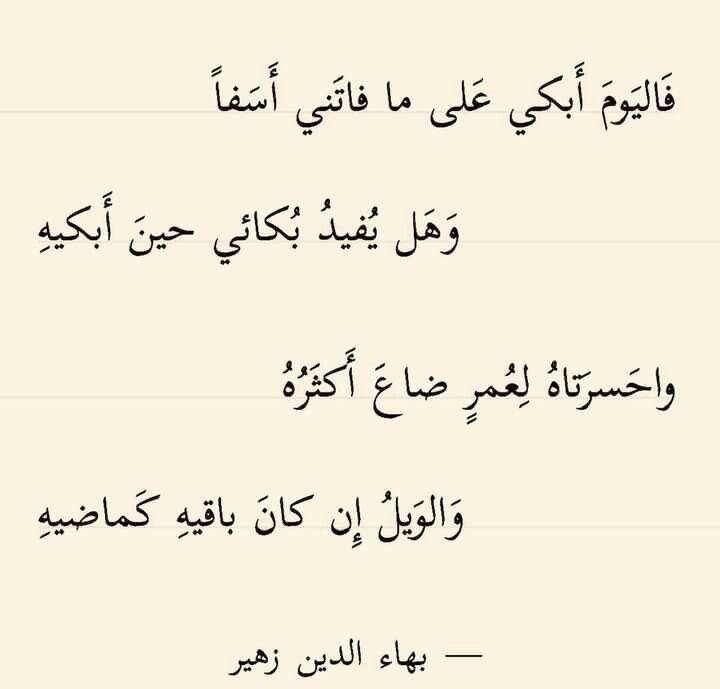 فَاليَومَ أَبكي عَلى ما فاتَني أَسَفاً
وَهَل يُفيدُ بُكائي حينَ أَبكيهِ
واحَسرَتاهُ لِعُمرٍ ضاعَ أَكثَرُهُ
وَالوَيلُ إِن كانَ باقيهِ كَماضيهِ
— بهاء الدين زهير